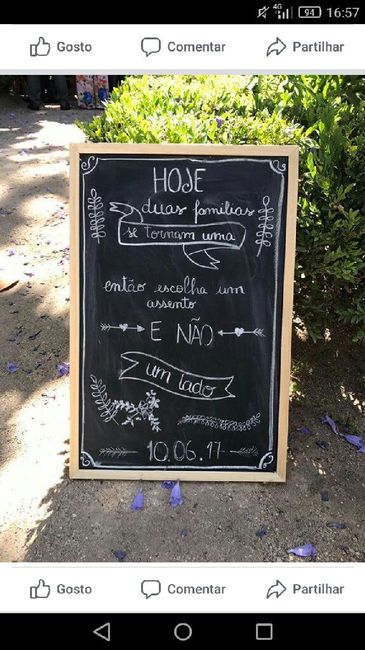 94 16:57
Gosto Comentar Partilhar
HOJE
duas famílias
se tornam uma
então escolha um
assento
E NÃO
um lado
10.06.17
Gosto Comentar Partilhar